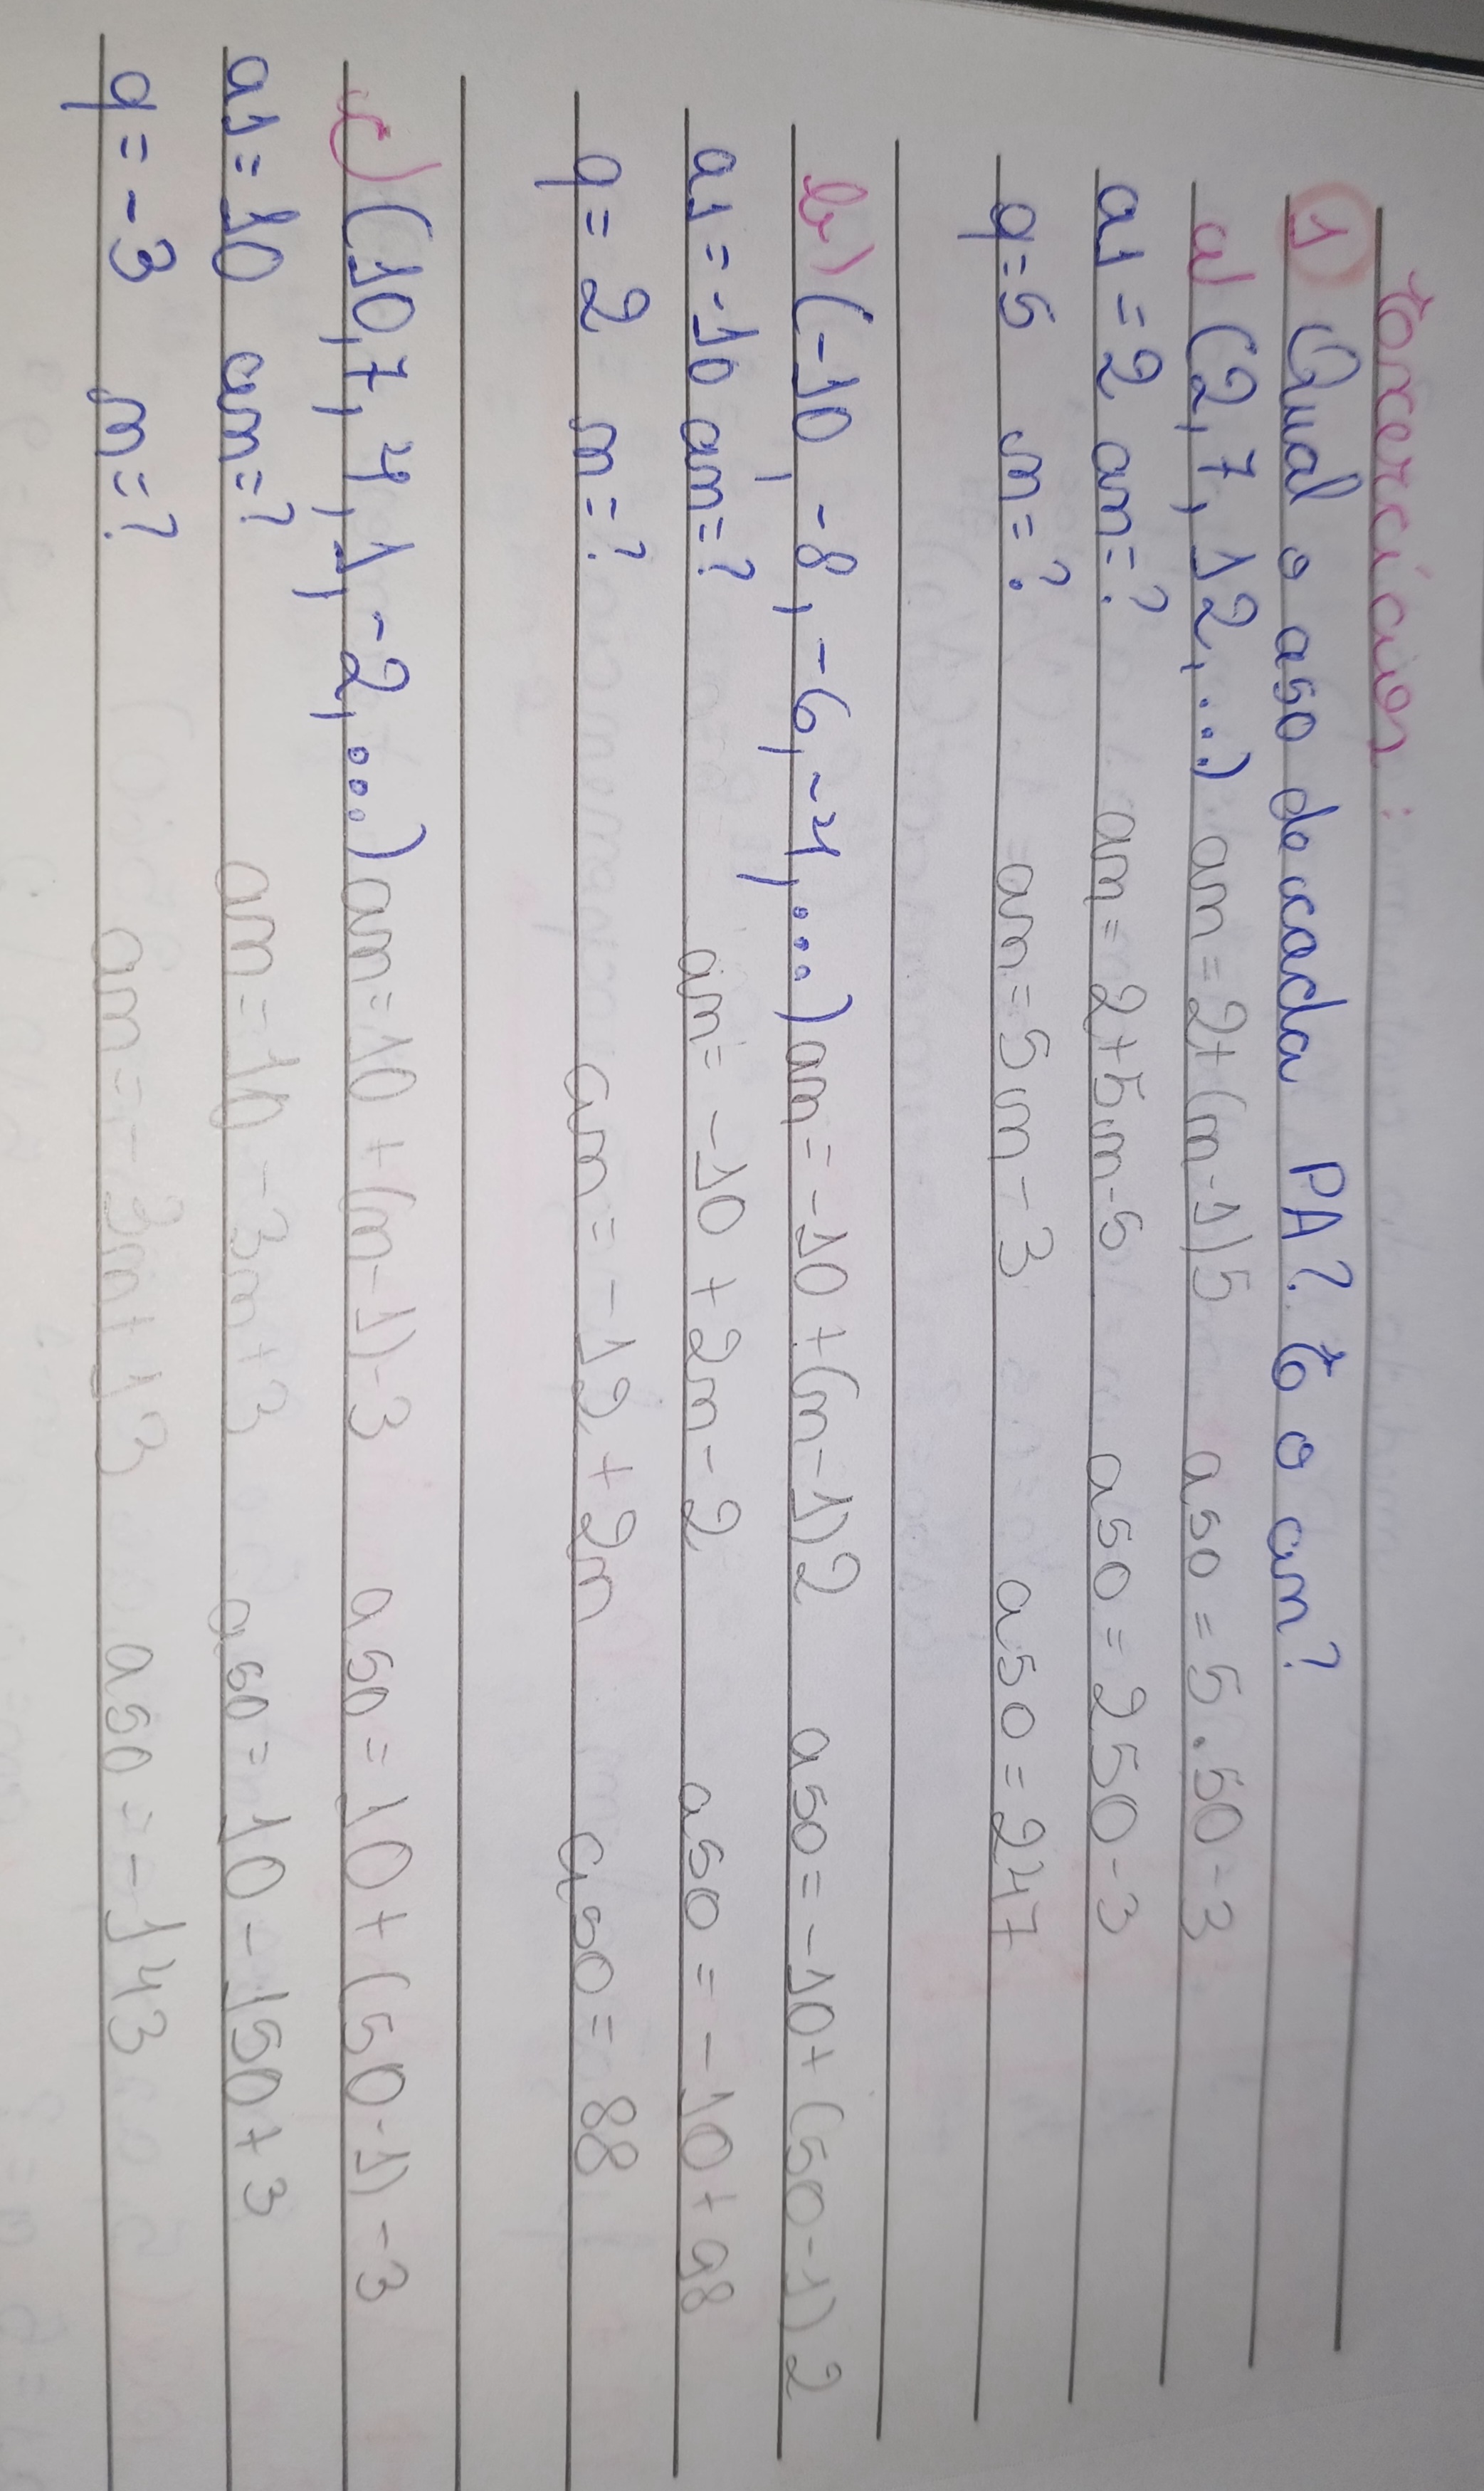 Exercícios:
1 Qual o a50 de cada PA? E o an?
a) (2, 7, 12, ...) an = 2 + (n-1)5 a50 = 5 . 50 - 3
a1 = 2 an = ? an = 2 + 5n - 5 a50 = 250 - 3
q = 5 n = ? an = 5n - 3 a50 = 247
b) (-10, -8, -6, -4, ...) an = -10 + (n-1)2 a50 = -10 + (50-1)2
a1 = -10 an = ? an = -10 + 2n - 2 a50 = -10 + 98
q = 2 n = ? an = -12 + 2n a50 = 88
c) (10, 7, 4, 1, -2, ...) an = 10 + (n-1)-3 a50 = 10 + (50-1)-3
a1 = 10 an = ? an = 10 - 3n + 3 a50 = 10 - 150 + 3
q = -3 n = ? an = -3n + 13 a50 = -143